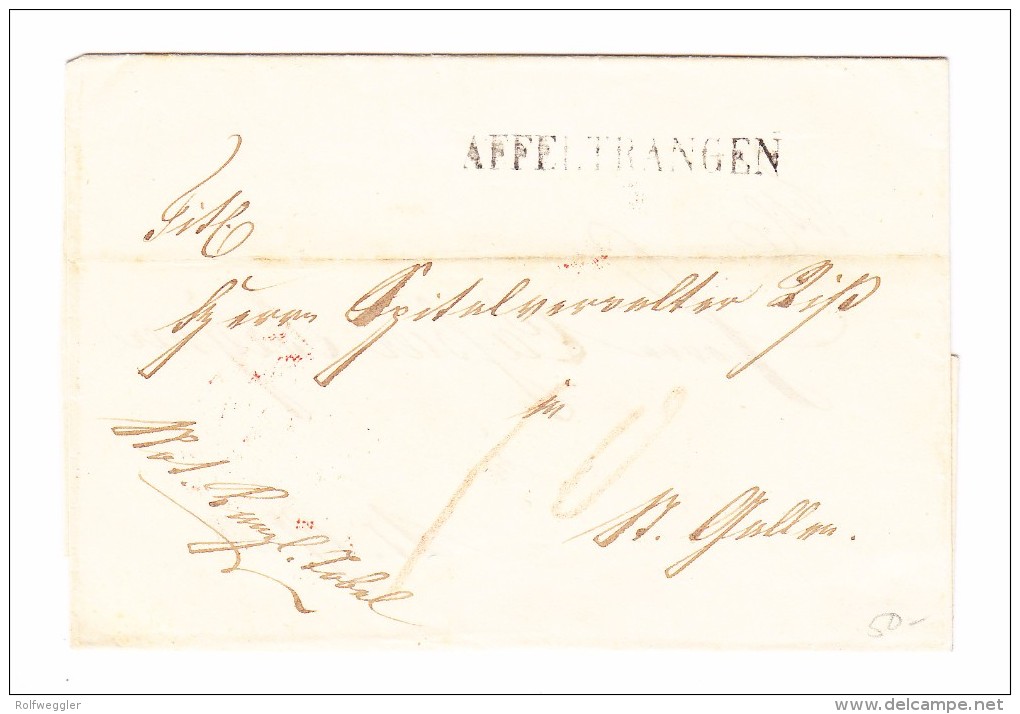 AFFELTRANGEN
Titl.
Herrn Spitalverwalter Liß
in
10
St. Gallen.
Not. Kanzl. Tobel
50-
Rolfweggler
www.delcampe.net